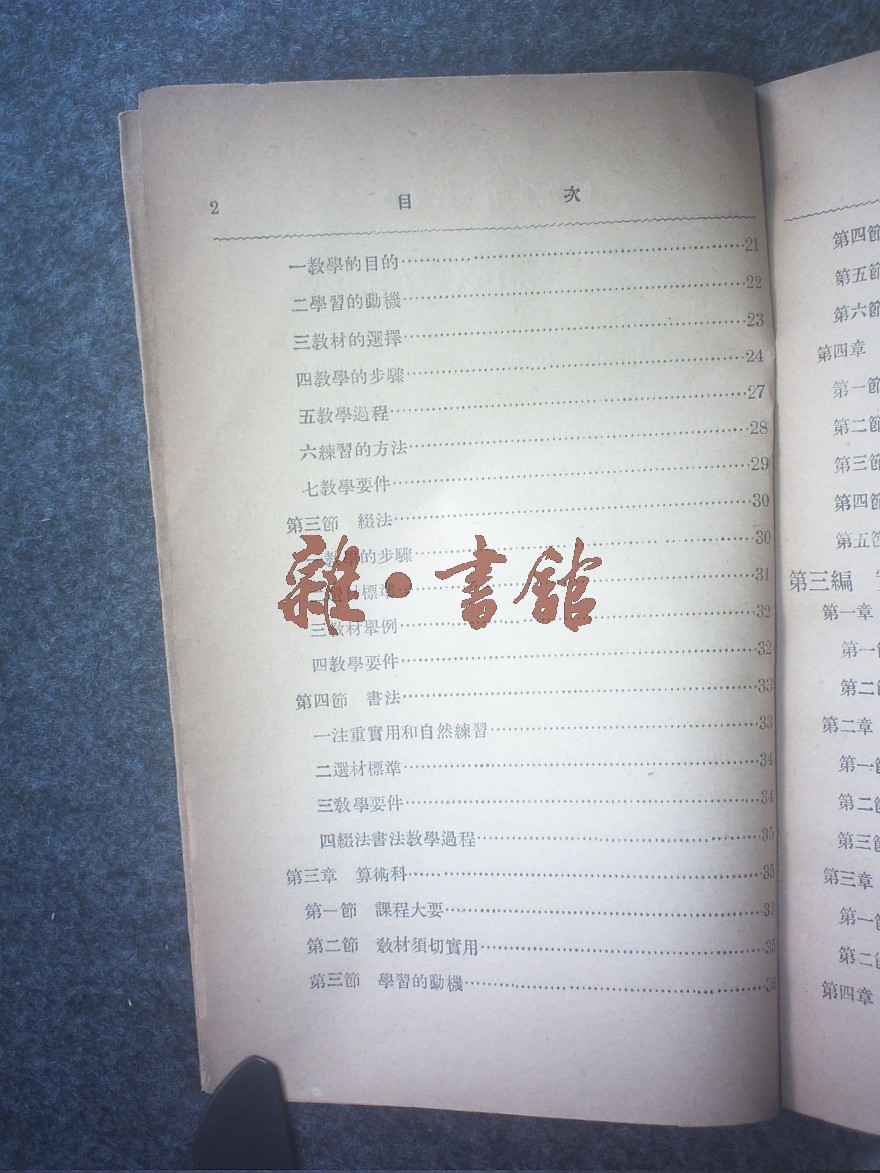 2 目次
一教學的目的……21
二學習的動機……22
三教材的選擇……23
四教學的步驟……24
五教學過程……27
六練習的方法……28
七教學要件……29
第三節 綴法……30
教學的步驟……30
標準……31
三教材舉例……32
四教學要件……32
第四節 書法……33
一注重實用和自然練習……33
二選材標準……34
三教學要件……34
四綴法書法教學過程……35
第三章 算術科……35
第一節 課程大要……35
第二節 教材須切實用……35
第三節 學習的動機……36
雜·書館
第四節
第五節
第六節
第四章
第一節
第二節
第三節
第四節
第五節
第三編
第一章
第一節
第二節
第二章
第一節
第二節
第三節
第三章
第一節
第二節
第四章